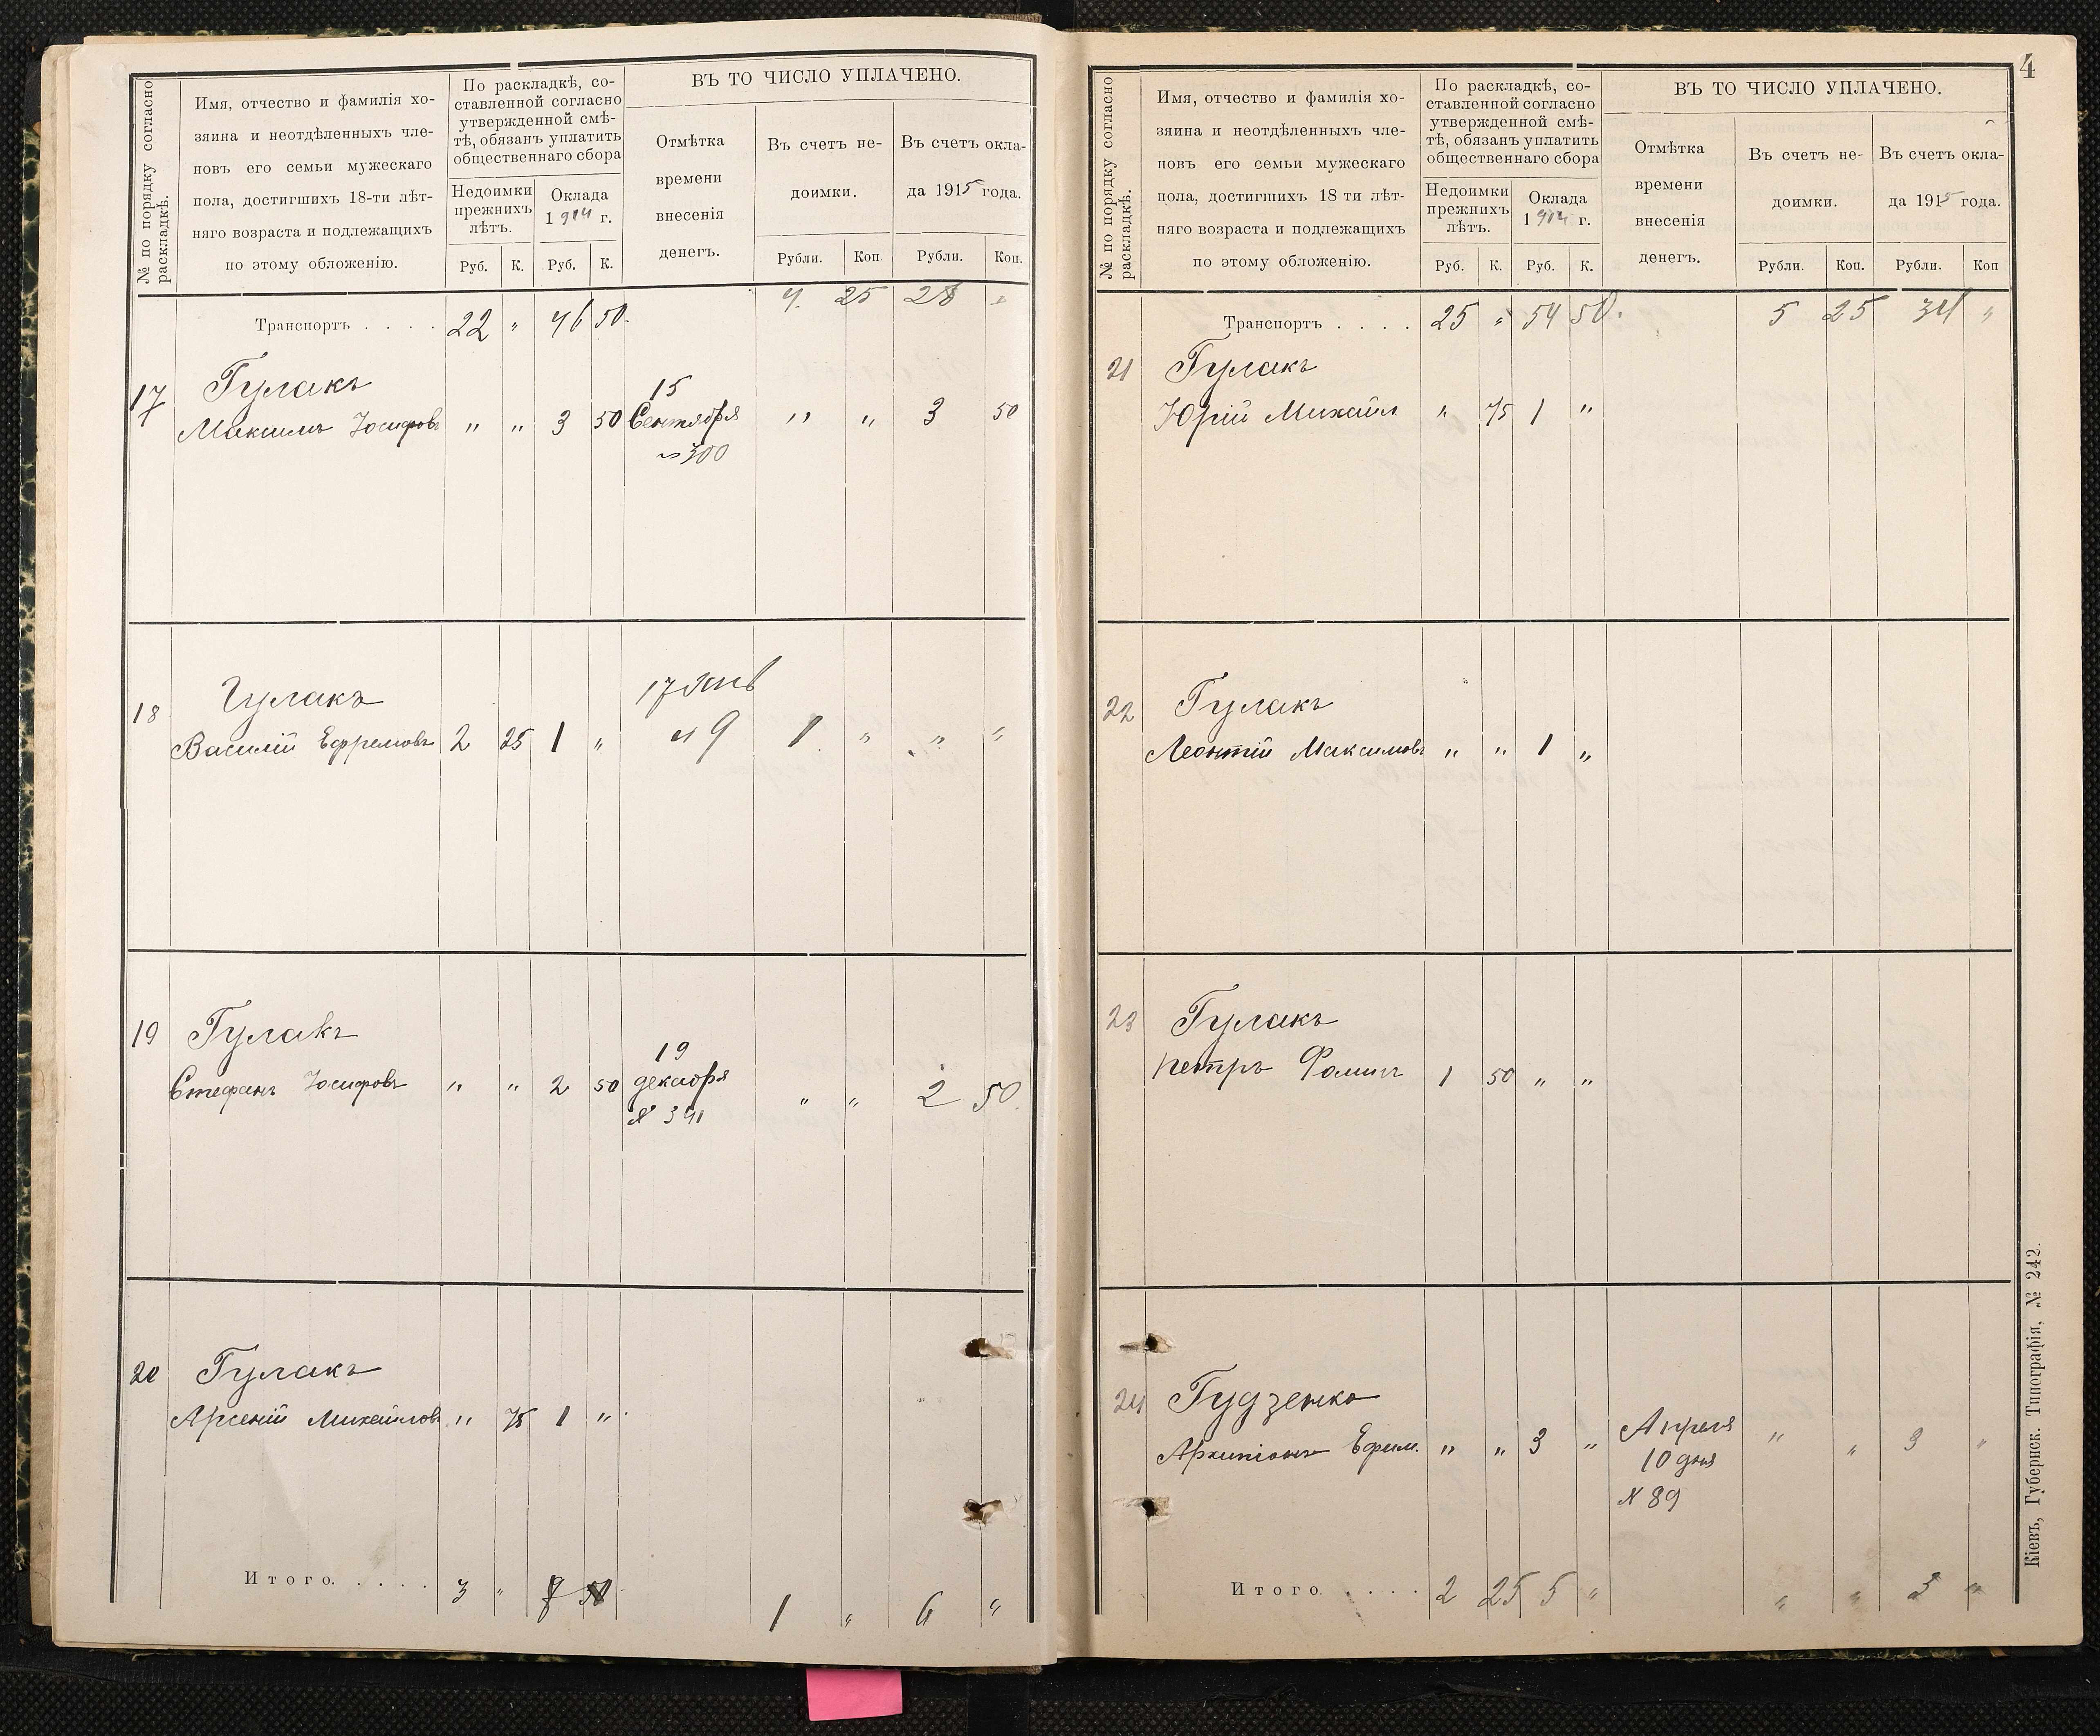 № по порядку согласно
раскладкѣ.
Имя, отчество и фамилія хо-
зяина и неотдѣленныхъ чле-
новъ его семьи мужескаго
пола, достигшихъ 18-ти лѣт-
няго возраста и подлежащихъ
по этому обложенію.
По раскладкѣ, со-
ставленной согласно
утвержденной смѣ-
тѣ, обязанъ уплатить
общественнаго сбора
Недоимки
прежнихъ
лѣтъ.
Оклада
1914 г.
Руб. К. Руб. К.
ВЪ ТО ЧИСЛО УПЛАЧЕНО.
Отмѣтка
времени
внесенія
денегъ.
Въ счетъ не-
доимки.
Рубли. Коп.
Въ счетъ окла-
да 1915 года.
Рубли. Коп.
Транспортъ . . . . 22 „ 46 50 4 25 28 „
17 Гулакъ
Максимъ Іосифовъ „ „ 3 50
15
Сентября
№ 300
„ „ 3 50
18 Гулакъ
Василій Ефремовъ 2 25 1 „
17 Янв
№ 9
1 „ „ „
19 Гулакъ
Стефанъ Іосифовъ „ „ 2 50
19
декабря
№ 391
„ „ 2 50
20 Гулакъ
Арсеній Михайловъ „ 75 1 „
Итого. . . . . 3 „ 50 1 „ 6 „
4
№ по порядку согласно
раскладкѣ.
Имя, отчество и фамилія хо-
зяина и неотдѣленныхъ чле-
новъ его семьи мужескаго
пола, достигшихъ 18 ти лѣт-
няго возраста и подлежащихъ
по этому обложенію.
По раскладкѣ, со-
ставленной согласно
утвержденной смѣ-
тѣ, обязанъ уплатить
общественнаго сбора
Недоимки
прежнихъ
лѣтъ.
Оклада
1914 г.
Руб. К. Руб. К.
ВЪ ТО ЧИСЛО УПЛАЧЕНО.
Отмѣтка
времени
внесенія
денегъ.
Въ счетъ не-
доимки.
Рубли. Коп.
Въ счетъ окла-
да 1915 года.
Рубли. Коп
Транспортъ . . . . 25 „ 54 50 5 25 34 „
21 Гулакъ
Юрій Михайл „ 75 1 „
22 Гулакъ
Леонтій Максимовъ „ „ 1 „
23 Гулакъ
Петръ Фомин 1 50 „ „
24 Гудзенко
Архипіонъ Ефим. „ „ 3 „
Апреля
10 дня
№ 89
„ „ 3 „
Итого. . . . . 2 25 5 „ „ „ 3 „
Кіевъ, Губернск. Типографія, № 242.